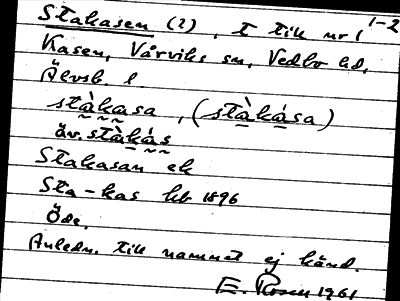 1-2
Stakasen (2), t till nr 1
Kasen, Vårviks sn, Vedbo hd,
Älvsb. l.
stàkasa, (stàkása)
äv. stàkás
Stakasan ek
Sta-kas hb 1896
Öde.
Anledn. till namnet ej känd.
E. Rosen 1961